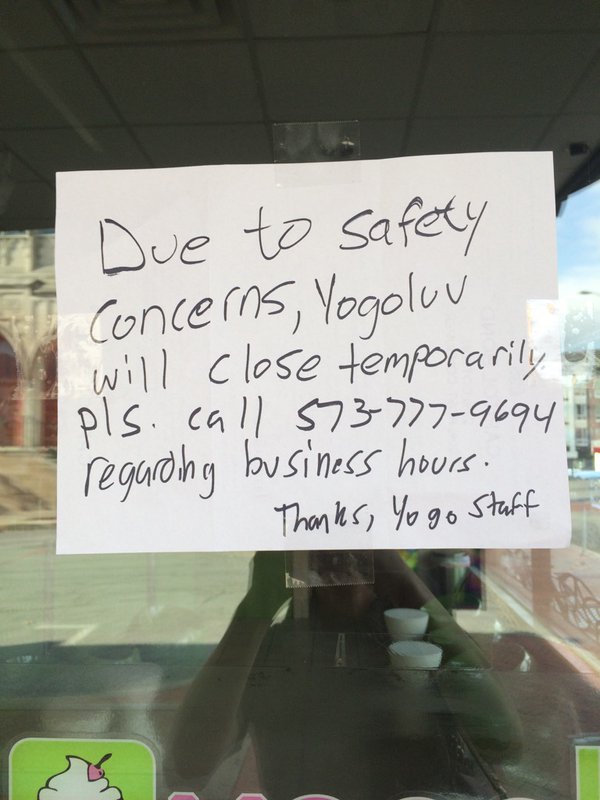 Due to safety
concerns, Yogoluv
will close temporarily
pls. call 573-777-9694
regarding business hours.
Thanks, Yogo Staff